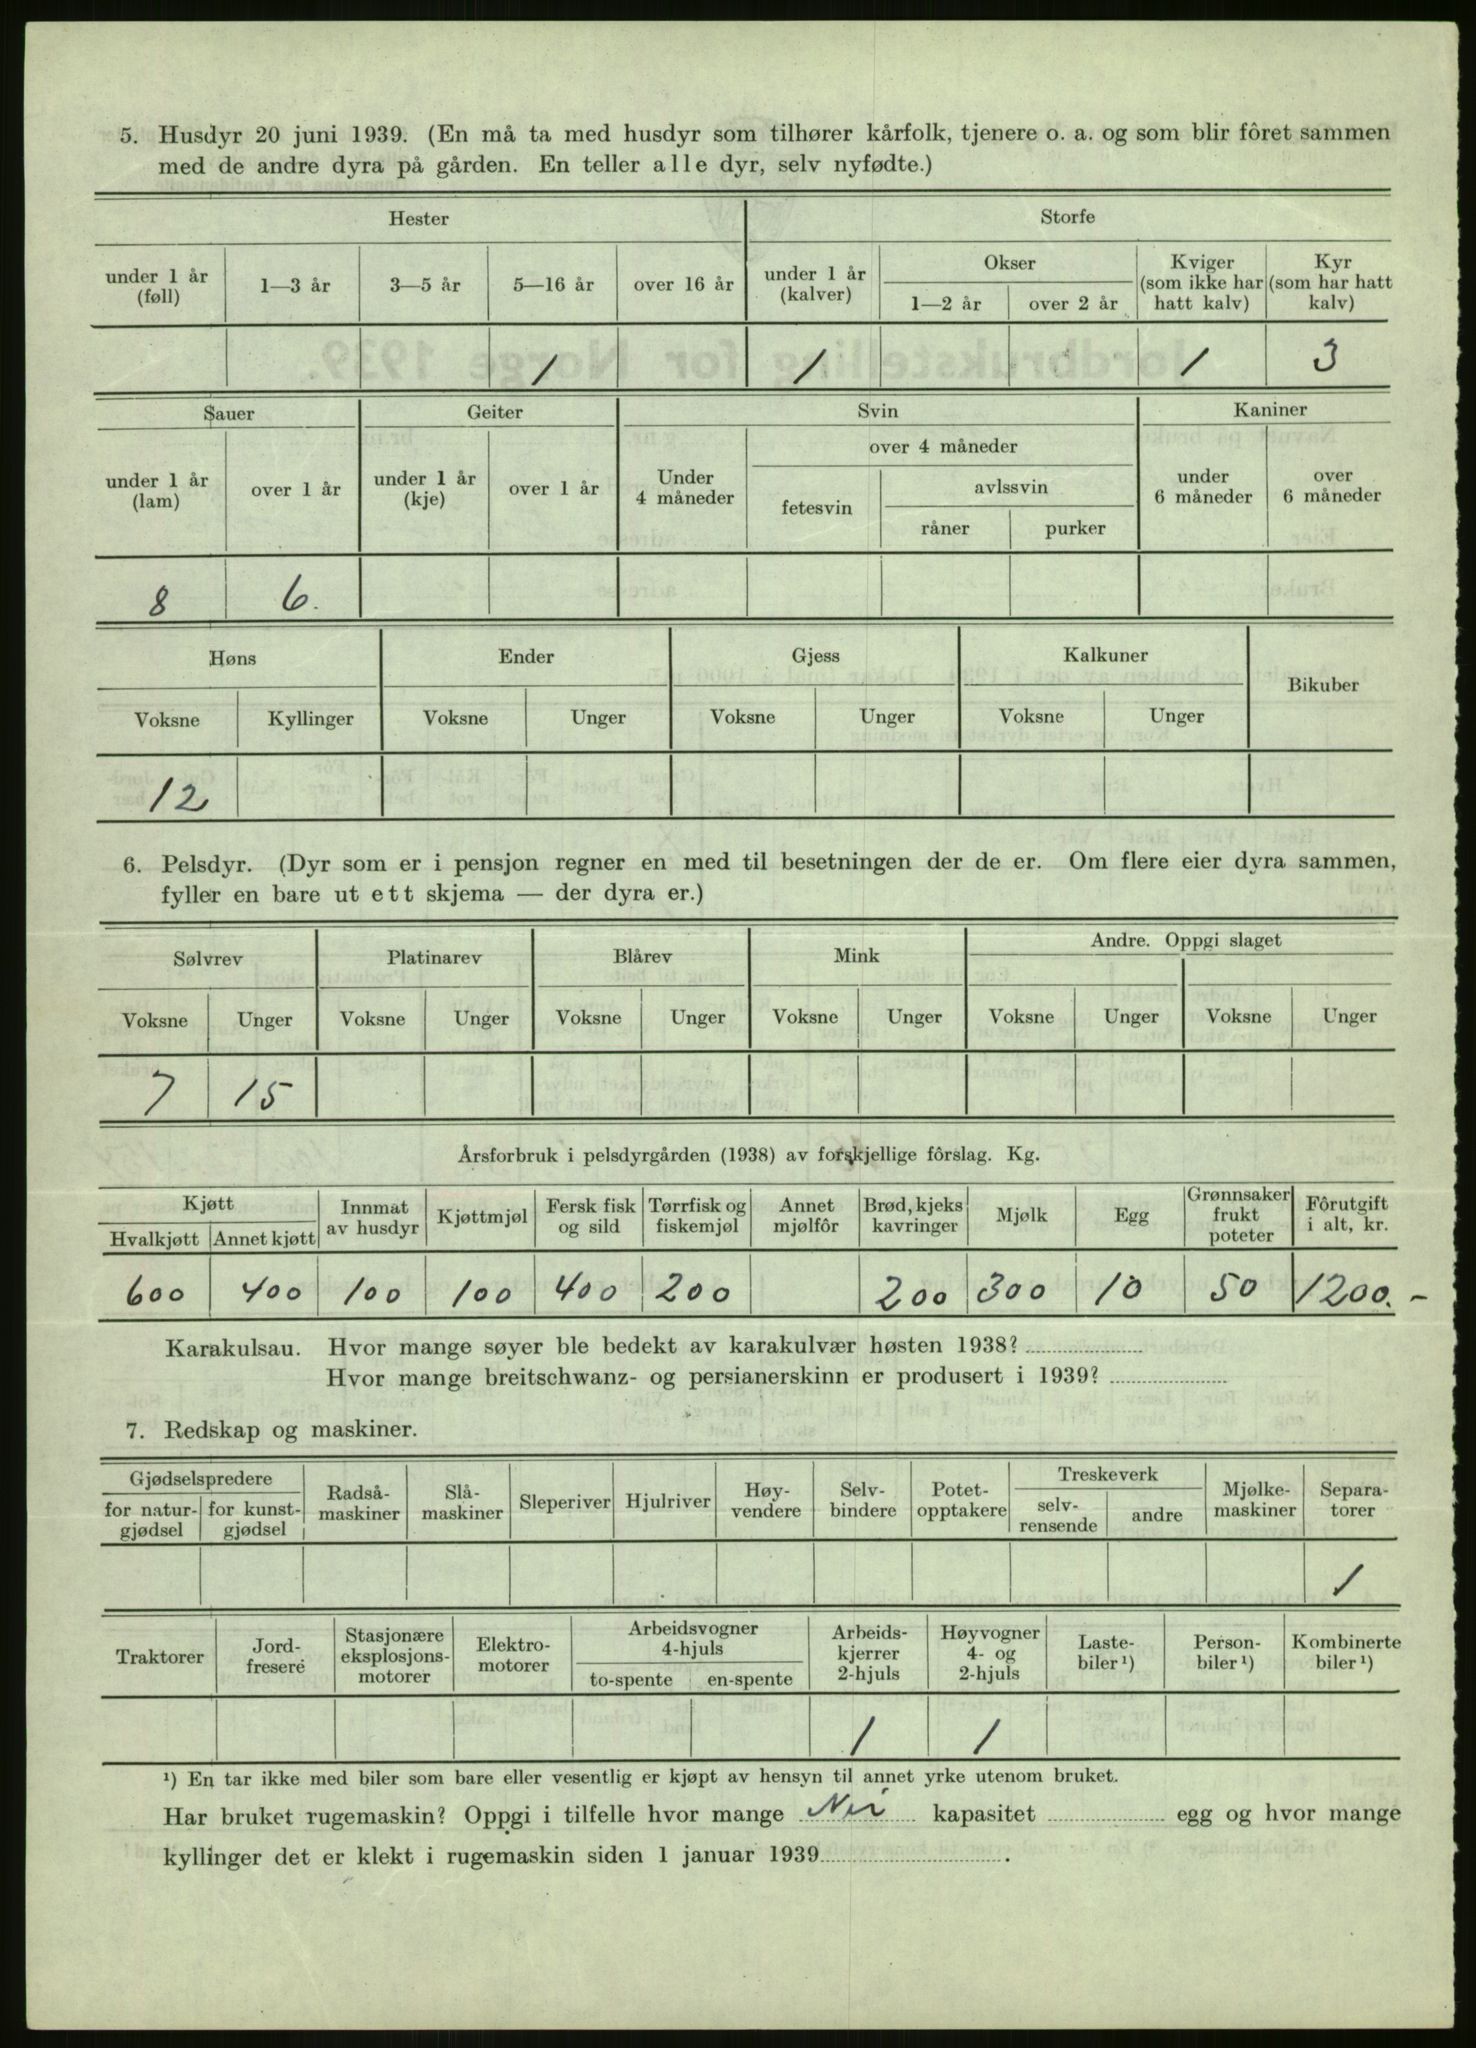 5. Husdyr 20 juni 1939. (En må ta med husdyr som tilhører kårfolk, tjenere o. a. og som blir fôret sammen
med de andre dyra på gården. En teller alle dyr, selv nyfødte.)
Hester Storfe
under 1 år (føll) 1—3 år 3—5 år 5—16 år over 16 år under 1 år (kalver) Okser 1—2 år over 2 år Kviger (som ikke har hatt kalv) Kyr (som har hatt kalv)
1 1 1 3
Sauer Geiter Svin Kaniner
under 1 år (lam) over 1 år under 1 år (kje) over 1 år Under 4 måneder over 4 måneder fetesvin avlssvin råner purker under 6 måneder over 6 måneder
8 6.
Høns Ender Gjess Kalkuner Bikuber
Voksne Kyllinger Voksne Unger Voksne Unger Voksne Unger
12
6. Pelsdyr. (Dyr som er i pensjon regner en med til besetningen der de er. Om flere eier dyra sammen,
fyller en bare ut ett skjema — der dyra er.)
Sølvrev Platinarev Blårev Mink Andre. Oppgi slaget
Voksne Unger Voksne Unger Voksne Unger Voksne Unger Voksne Unger Voksne Unger
7 15
Årsforbruk i pelsdyrgården (1938) av forskjellige fôrslag. Kg.
Kjøtt Hvalkjøtt Annet kjøtt Innmat av husdyr Kjøttmjøl Fersk fisk og sild Tørrfisk og fiskemjøl Annet mjølfôr Brød, kjeks kavringer Mjølk Egg Grønnsaker frukt poteter Fôrutgift i alt, kr.
600 400 100 100 400 200 200 300 10 50 1200.-
Karakulsau. Hvor mange søyer ble bedekt av karakulvær høsten 1938?
Hvor mange breitschwanz- og persianerskinn er produsert i 1939?
7. Redskap og maskiner.
Gjødselspredere for natur- gjødsel for kunst- gjødsel Radså- maskiner Slå- maskiner Sleperiver Hjulriver Høy- vendere Selv- bindere Potet- opptakere Treskeverk selv- rensende andre Mjølke- maskiner Separa- torer
1
Traktorer Jord- fresere Stasjonære eksplosjons- motorer Elektro- motorer Arbeidsvogner 4-hjuls to-spente en-spente Arbeids- kjerrer 2-hjuls Høyvogner 4- og 2-hjuls Laste- biler ¹) Person- biler ¹) Kombinerte biler ¹)
1 1
¹) En tar ikke med biler som bare eller vesentlig er kjøpt av hensyn til annet yrke utenom bruket.
Har bruket rugemaskin? Oppgi i tilfelle hvor mange Nei kapasitet egg og hvor mange
kyllinger det er klekt i rugemaskin siden 1 januar 1939 .